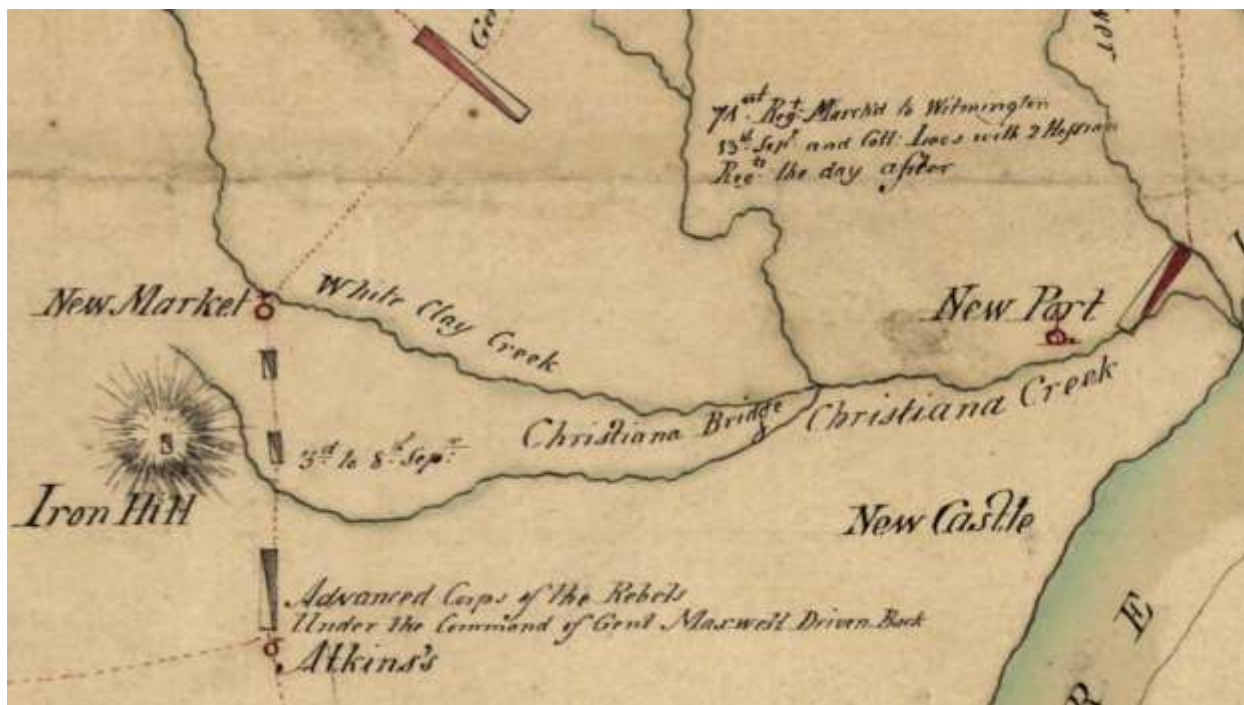 Ge
71st Regt. March'd to Wilmington
13th Sept. and Coll: Loos with 2 Hessian
Regts. the day after
New Market
White Clay Creek
New Port
Christiana Bridge
Christiana Creek
3rd to 8th Sepr.
Iron Hill
New Castle
Advanced Corps of the Rebels
Under the Command of Genl Maxwell Driven Back
Atkins's
R E